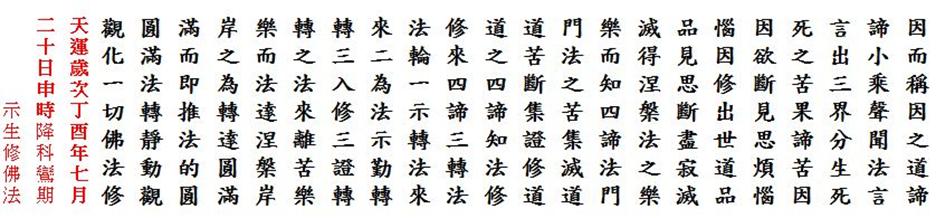 因而稱因之道諦
諦小乘聲聞法言
言出三界分生死
死之苦果諦苦因
因欲斷見思煩惱
惱因修出世道品
品見思斷盡寂滅
滅得涅槃法之樂
樂而知四諦法門
門法之苦集滅道
道苦斷集證修道
道之四諦知法修
修來四諦三轉法
法輪一示轉法來
來二為法示勤轉
轉三入修三證轉
轉轉法來離苦樂
樂而法達涅槃岸
岸之為轉達圓滿
滿而即推法的圓
圓滿法轉靜動觀
觀化一切佛法修
天運歲次丁酉年七月
二十日申時降科鸞期
示生修佛法